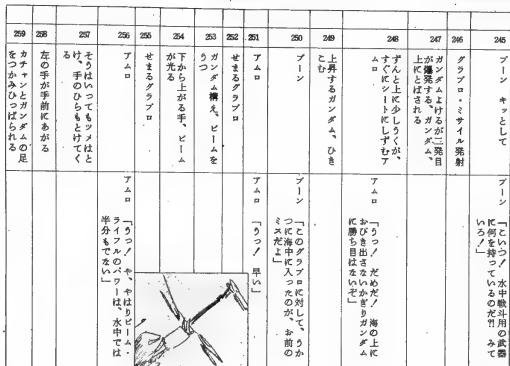 245
ブーン キッとして
ブーン
「こいつ！ 水中戦斗用の武器
に何を持っているのだ?! みて
いろ！」
246
グラブロ・ミサイル発射
247
ガンダムよけるが二発目
が爆発する、ガンダム、
上にとばされる
248
ずんと上に少しうくが、
すぐにシートにしずむア
ムロ
アムロ
「うっ！ だめだ！ 海の上に
おびき出さないかぎりガンダム
に勝ち目はないぞ」
249
上昇するガンダム、ひき
こむ
250
ブーン
ブーン
「このグラブロに対して、うか
つに海中に入ったのが、お前の
ミスだよ」
251
アムロ
アムロ
「うっ！ 早い」
252
せまるグラブロ
253
ガンダム構え、ビームを
うつ
254
下から上がる手、ビーム
が光る
255
せまるグラブロ
256
アムロ
アムロ
「うっ！ や、やはりビーム・
ライフルのパワーは、水中では
半分もでない」
257
そうはいってもツメはと
け、手のひらもとけてく
る
258
左の手が手前にあがる
259
カチャンとガンダムの足
をつかみひっぱられる